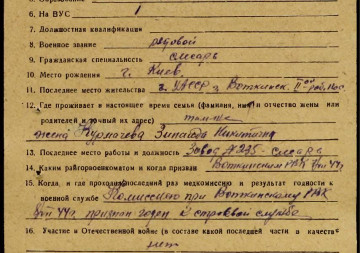 6. На ВУС 1
7. Должностная квалификация
8. Военное звание рядовой
9. Гражданская специальность слесарь
10. Место рождения г. Киев
11. Последнее место жительства г. Воткинск
12. Где проживает в настоящее время семья (фамилия, имя и отчество жены или
родителей и точный их адрес)
жена Зинаида Никитична
13. Последнее место работы и должность Завод № 235 - слесарь
14. Каким райгорвоенкоматом и когда призван Воткинским РВК
15. Когда, и где проходил последний раз медкомиссию и результат годности к
военной службе Комиссией при Воткинском РВК
44г. признан годен к строевой службе
16. Участие в Отечественной войне (в составе какой последней части в качестве
нет